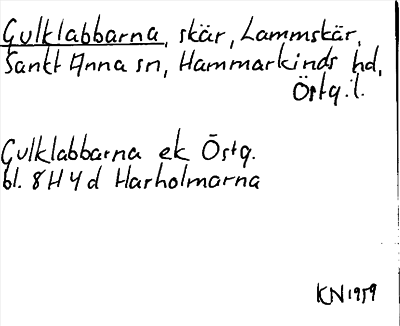 Gulklabbarna, skär, Lammskär,
Sankt Anna sn, Hammarkinds hd,
Östg.l.
Gulklabbarna ek Östg.
bl. 8H4d Harholmarna
KN 1959